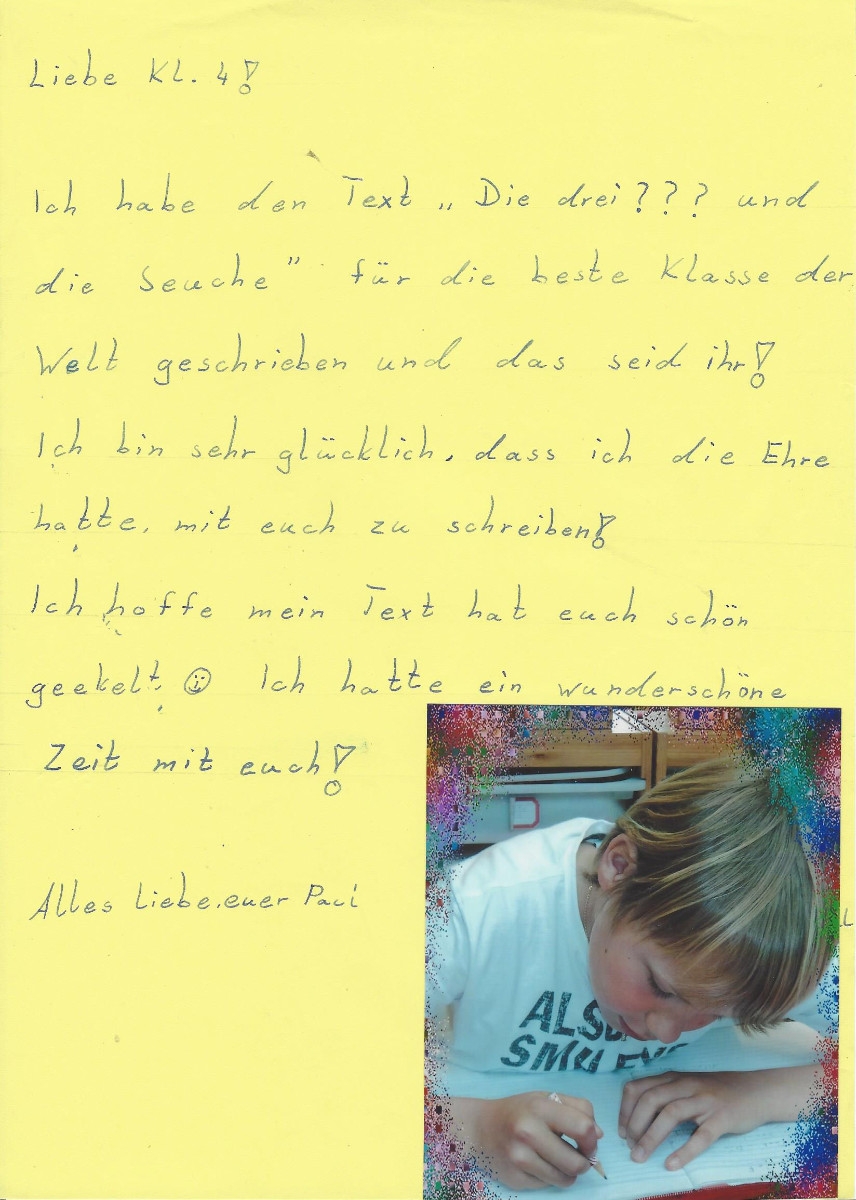 Liebe Kl. 4!
Ich habe den Text „Die drei??? und
die Seuche" für die beste Klasse der
Welt geschrieben und das seid ihr!
Ich bin sehr glücklich, dass ich die Ehre
hatte, mit euch zu schreiben!
Ich hoffe mein Text hat euch schön
geekelt. ☺ Ich hatte ein wunderschöne
Zeit mit euch!
Alles Liebe, euer Paul